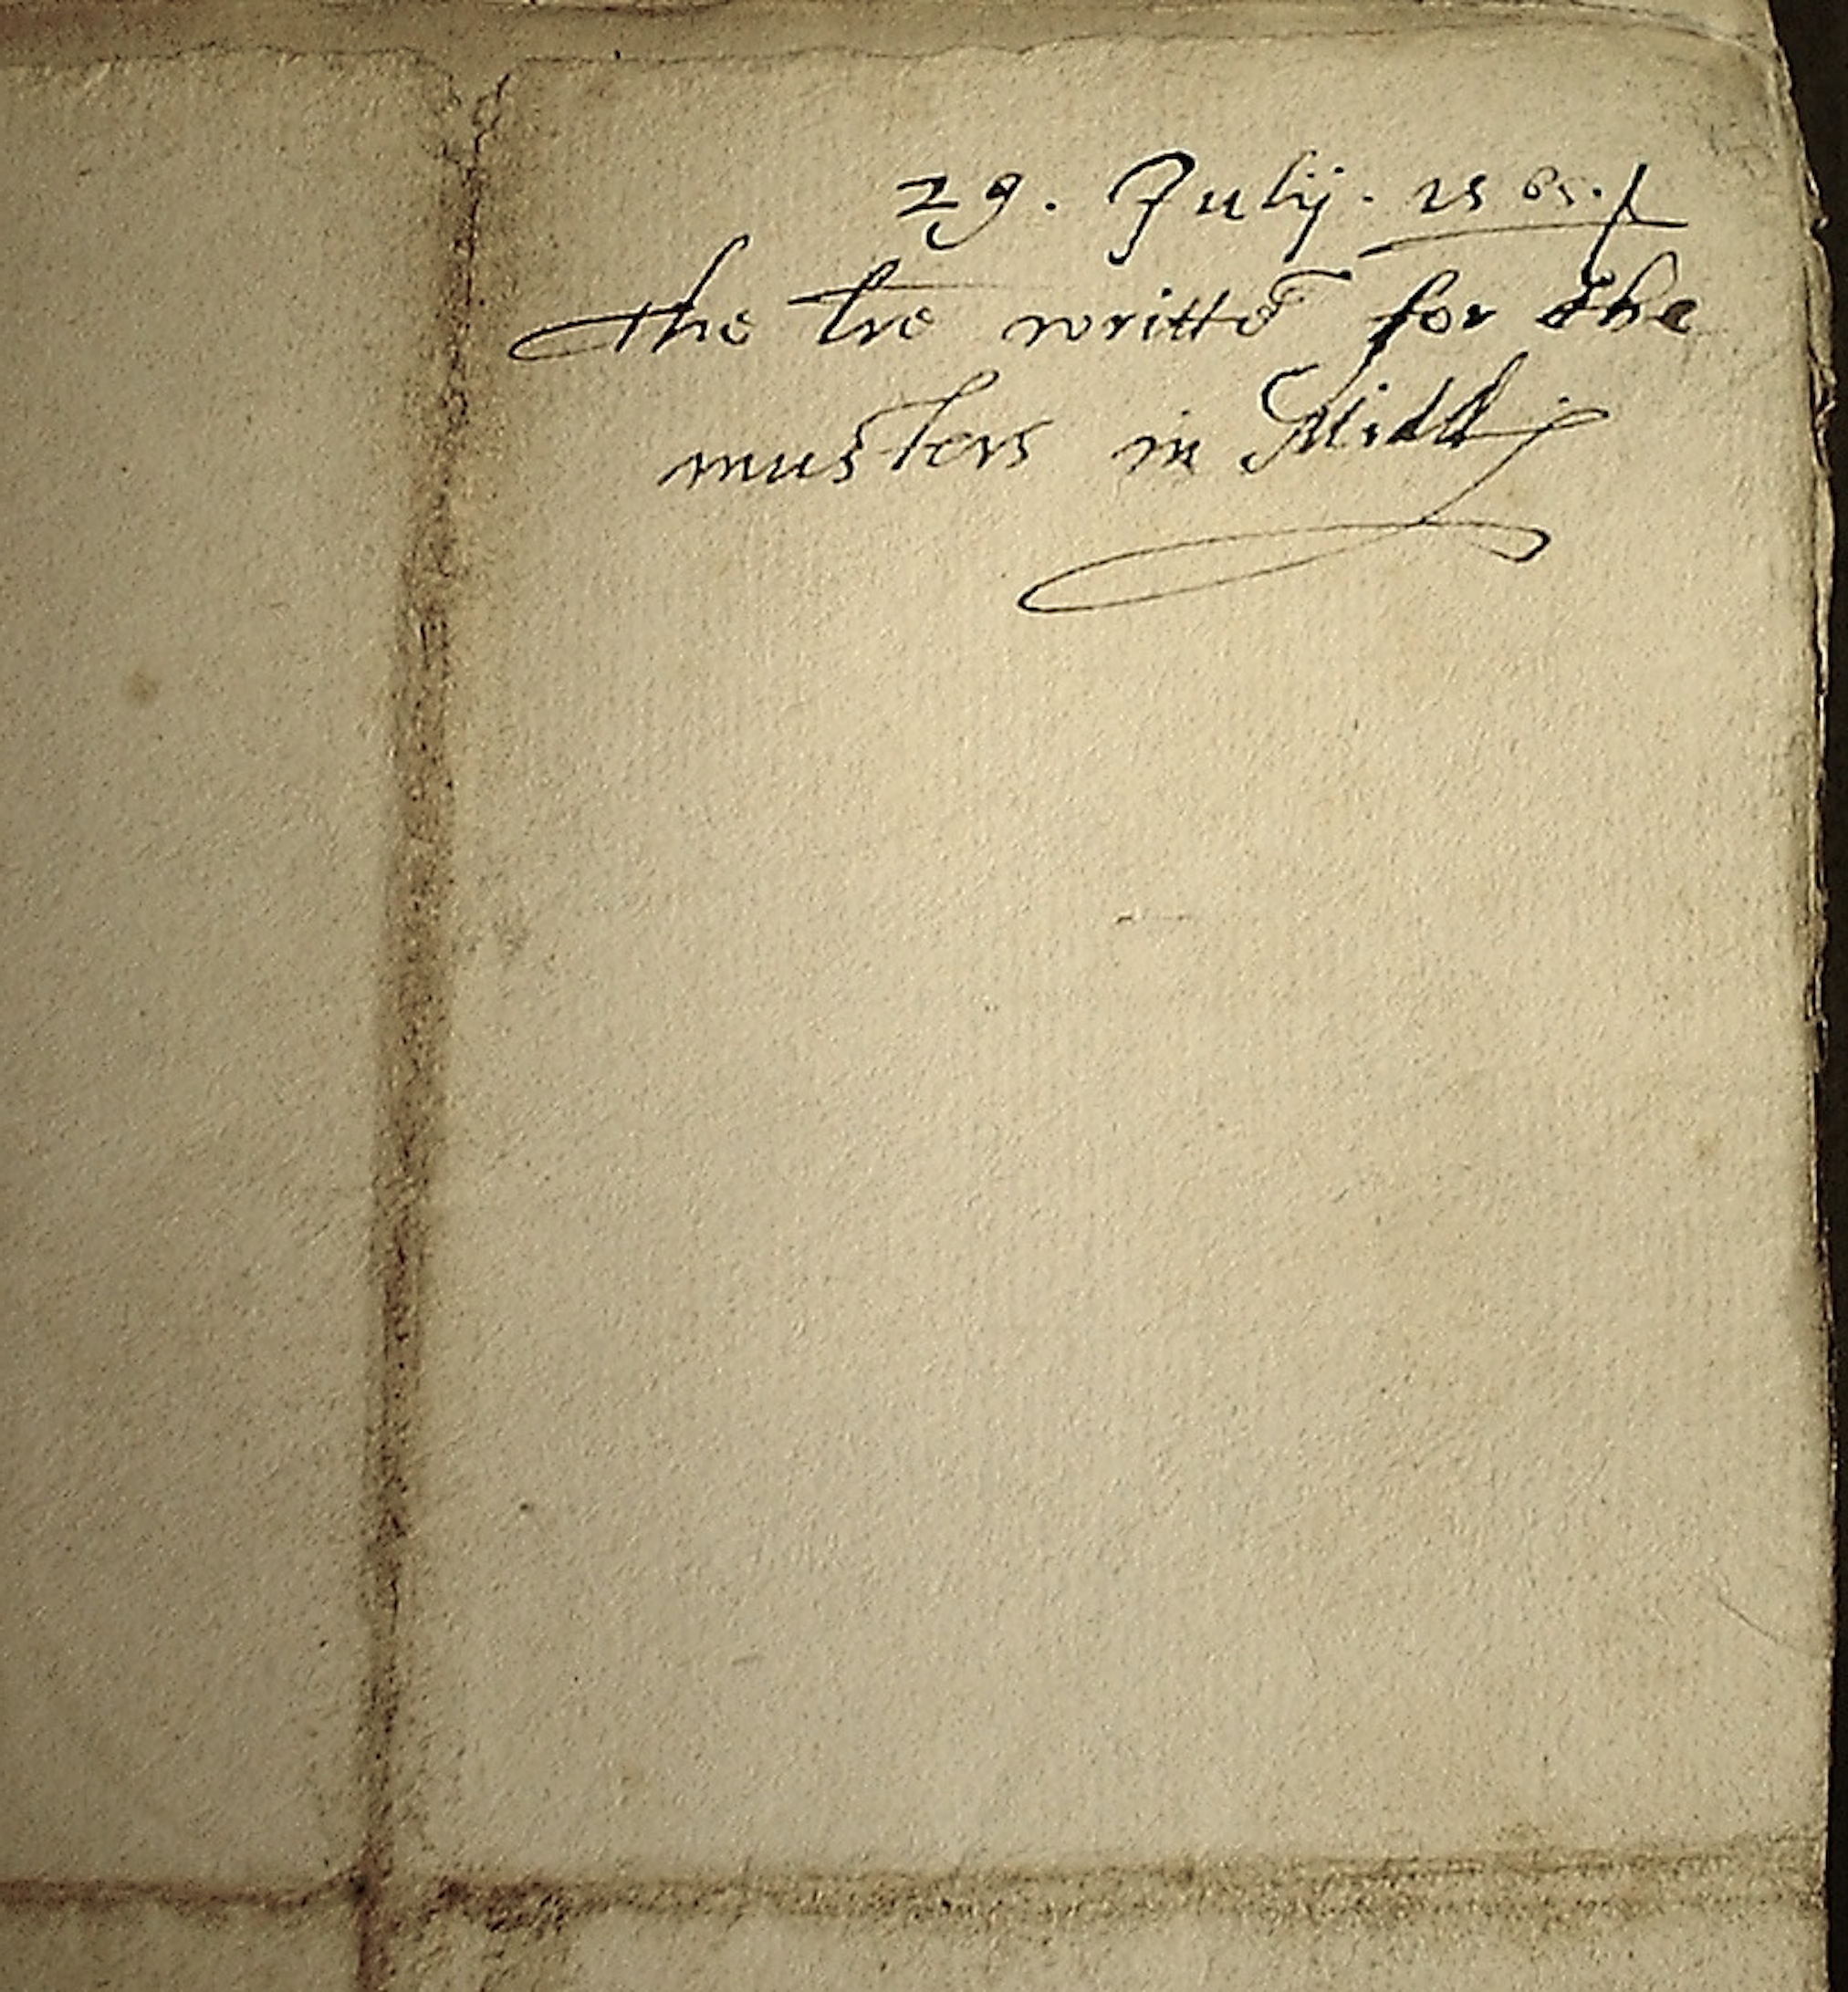 29. Julij. 1565.
The lre writtē for the
musters in Midd